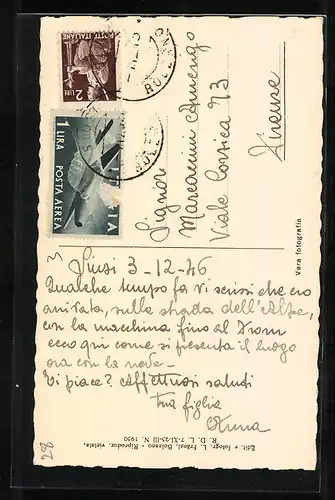 POSTE ITALIANE
2 LIRE
1 LIRA
POSTA AEREA
ITALIA
Signori
Mascarini Armengo
Viale Corsica 73
Firenze
Vera fotografia
Siusi 3-12-46
Qualche tempo fa vi scrissi che ero
andata, sulla strada dell'Alpe,
con la macchina fino al
ecco qui come si presenta il luogo
ora con la neve.
Vi piace? Affettuosi saluti
tua figlia
Anna
Edit. e fotogr. L. Fränzl, Bolzano - Riproduz. vietata.
R. D. L. 7-XI-25-III N. 1950